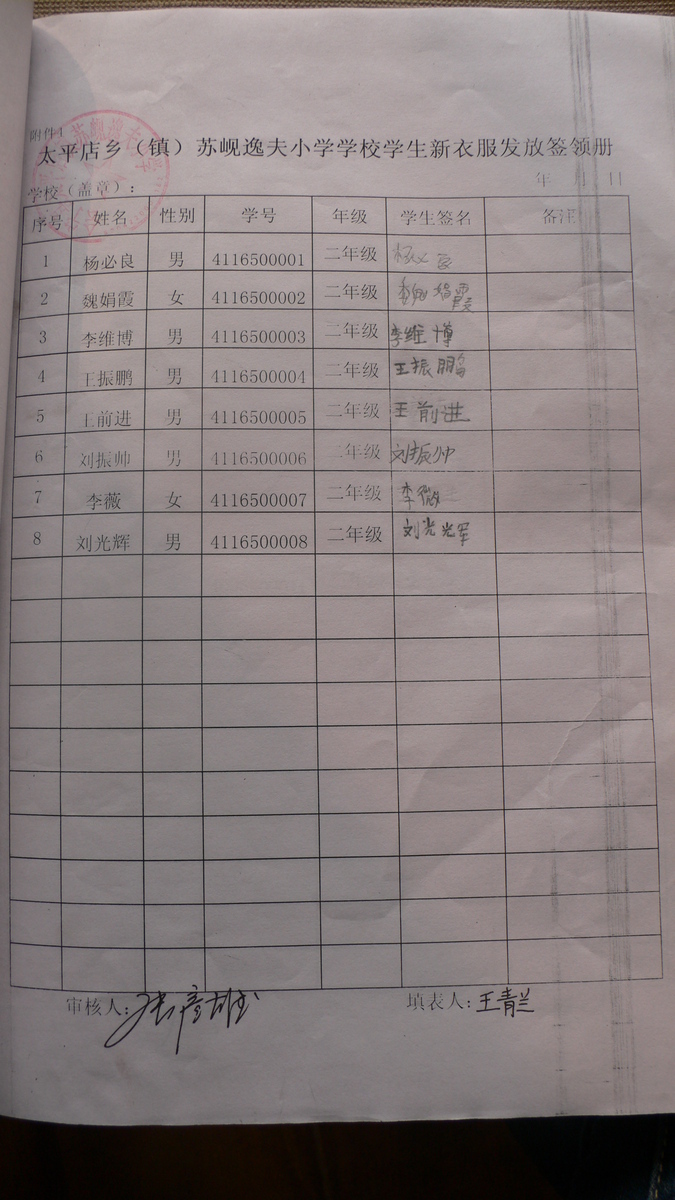 附件1
太平店乡（镇）苏岘逸夫小学学校学生新衣服发放签领册
学校（盖章）： 年 月 日
序号 姓名 性别 学号 年级 学生签名 备注
1 杨必良 男 4116500001 二年级 杨必良
2 魏娟霞 女 4116500002 二年级 魏娟霞
3 李维博 男 4116500003 二年级 李维博
4 王振鹏 男 4116500004 二年级 王振鹏
5 王前进 男 4116500005 二年级 王前进
6 刘振帅 男 4116500006 二年级 刘振帅
7 李薇 女 4116500007 二年级 李薇
8 刘光辉 男 4116500008 二年级 刘光辉
审核人： 填表人：王青兰